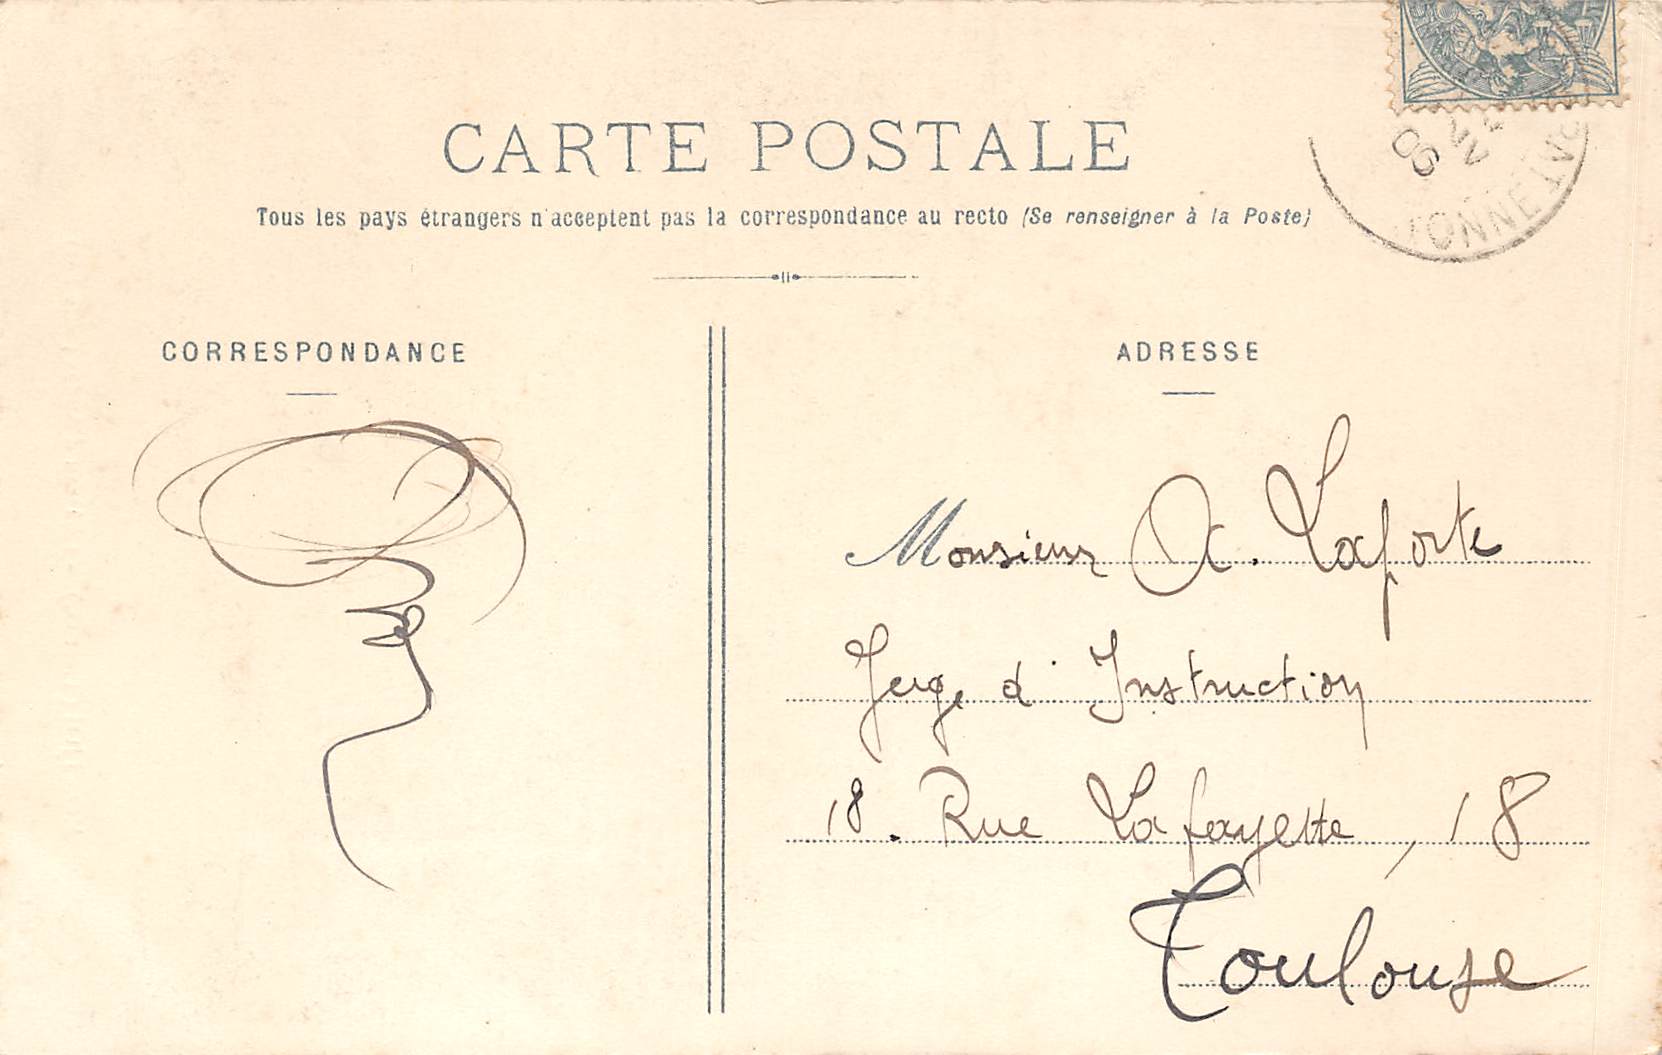 CARTE POSTALE
Tous les pays étrangers n'acceptent pas la correspondance au recto (Se renseigner à la Poste)
CORRESPONDANCE
ADRESSE
Monsieur A. Laporte
Juge d'Instruction
18. Rue Lafayette, 18
Toulouse